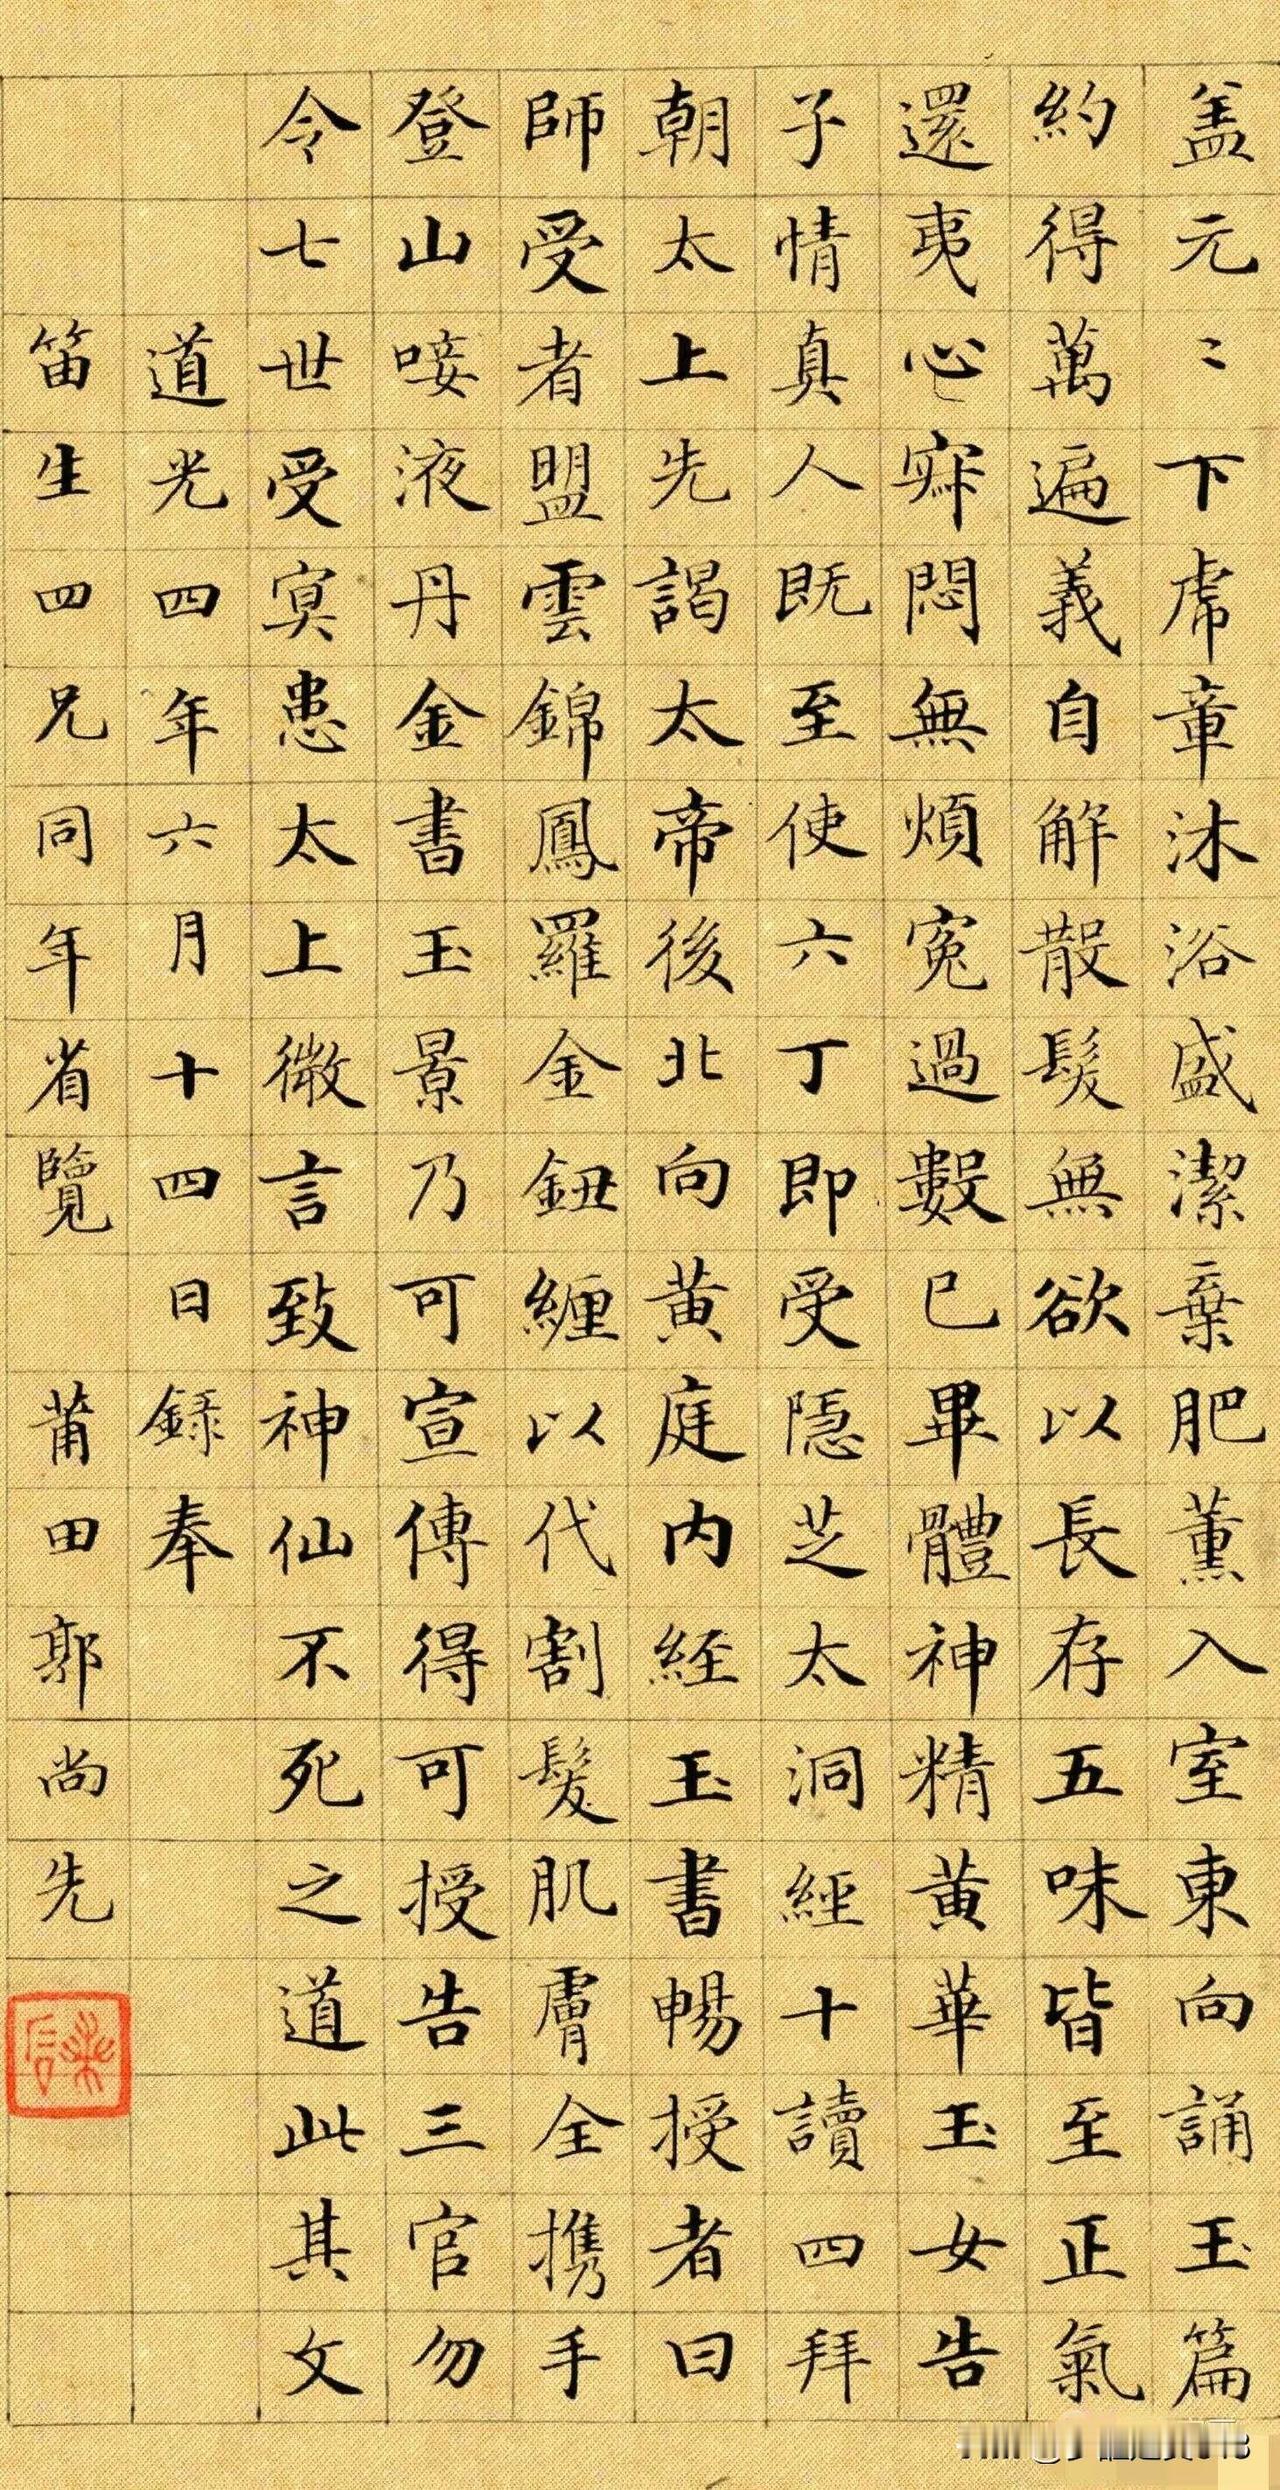 盖元〻下虎章沐浴盛潔棄肥薰入室東向誦玉篇
約得萬遍義自解散髮無欲以長存五味皆至正氣
還夷心寂悶無煩寃過數已畢體神精黄華玉女告
子情真人既至使六丁即受隱芝太洞經十讀四拜
朝太上先謁太帝後北向黄庭内經玉書暢授者曰
師受者盟雲錦鳳羅金鈕纏以代割髮肌膚全携手
登山唼液丹金書玉景乃可宣傳得可授告三官勿
令七世受冥患太上微言致神仙不死之道此其文
道光四年六月十四日録奉
笛生四兄同年省覽 莆田郭尚先